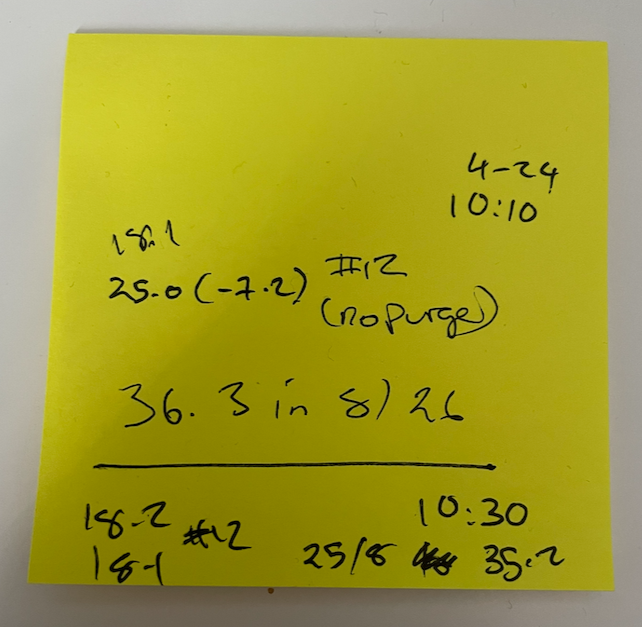 4-24
10:10
18.1
25.0 (-7.2) #12
(no purge)
36.3 in 8) 26
18.2 #12 10:30
18.1 25/8 35.2